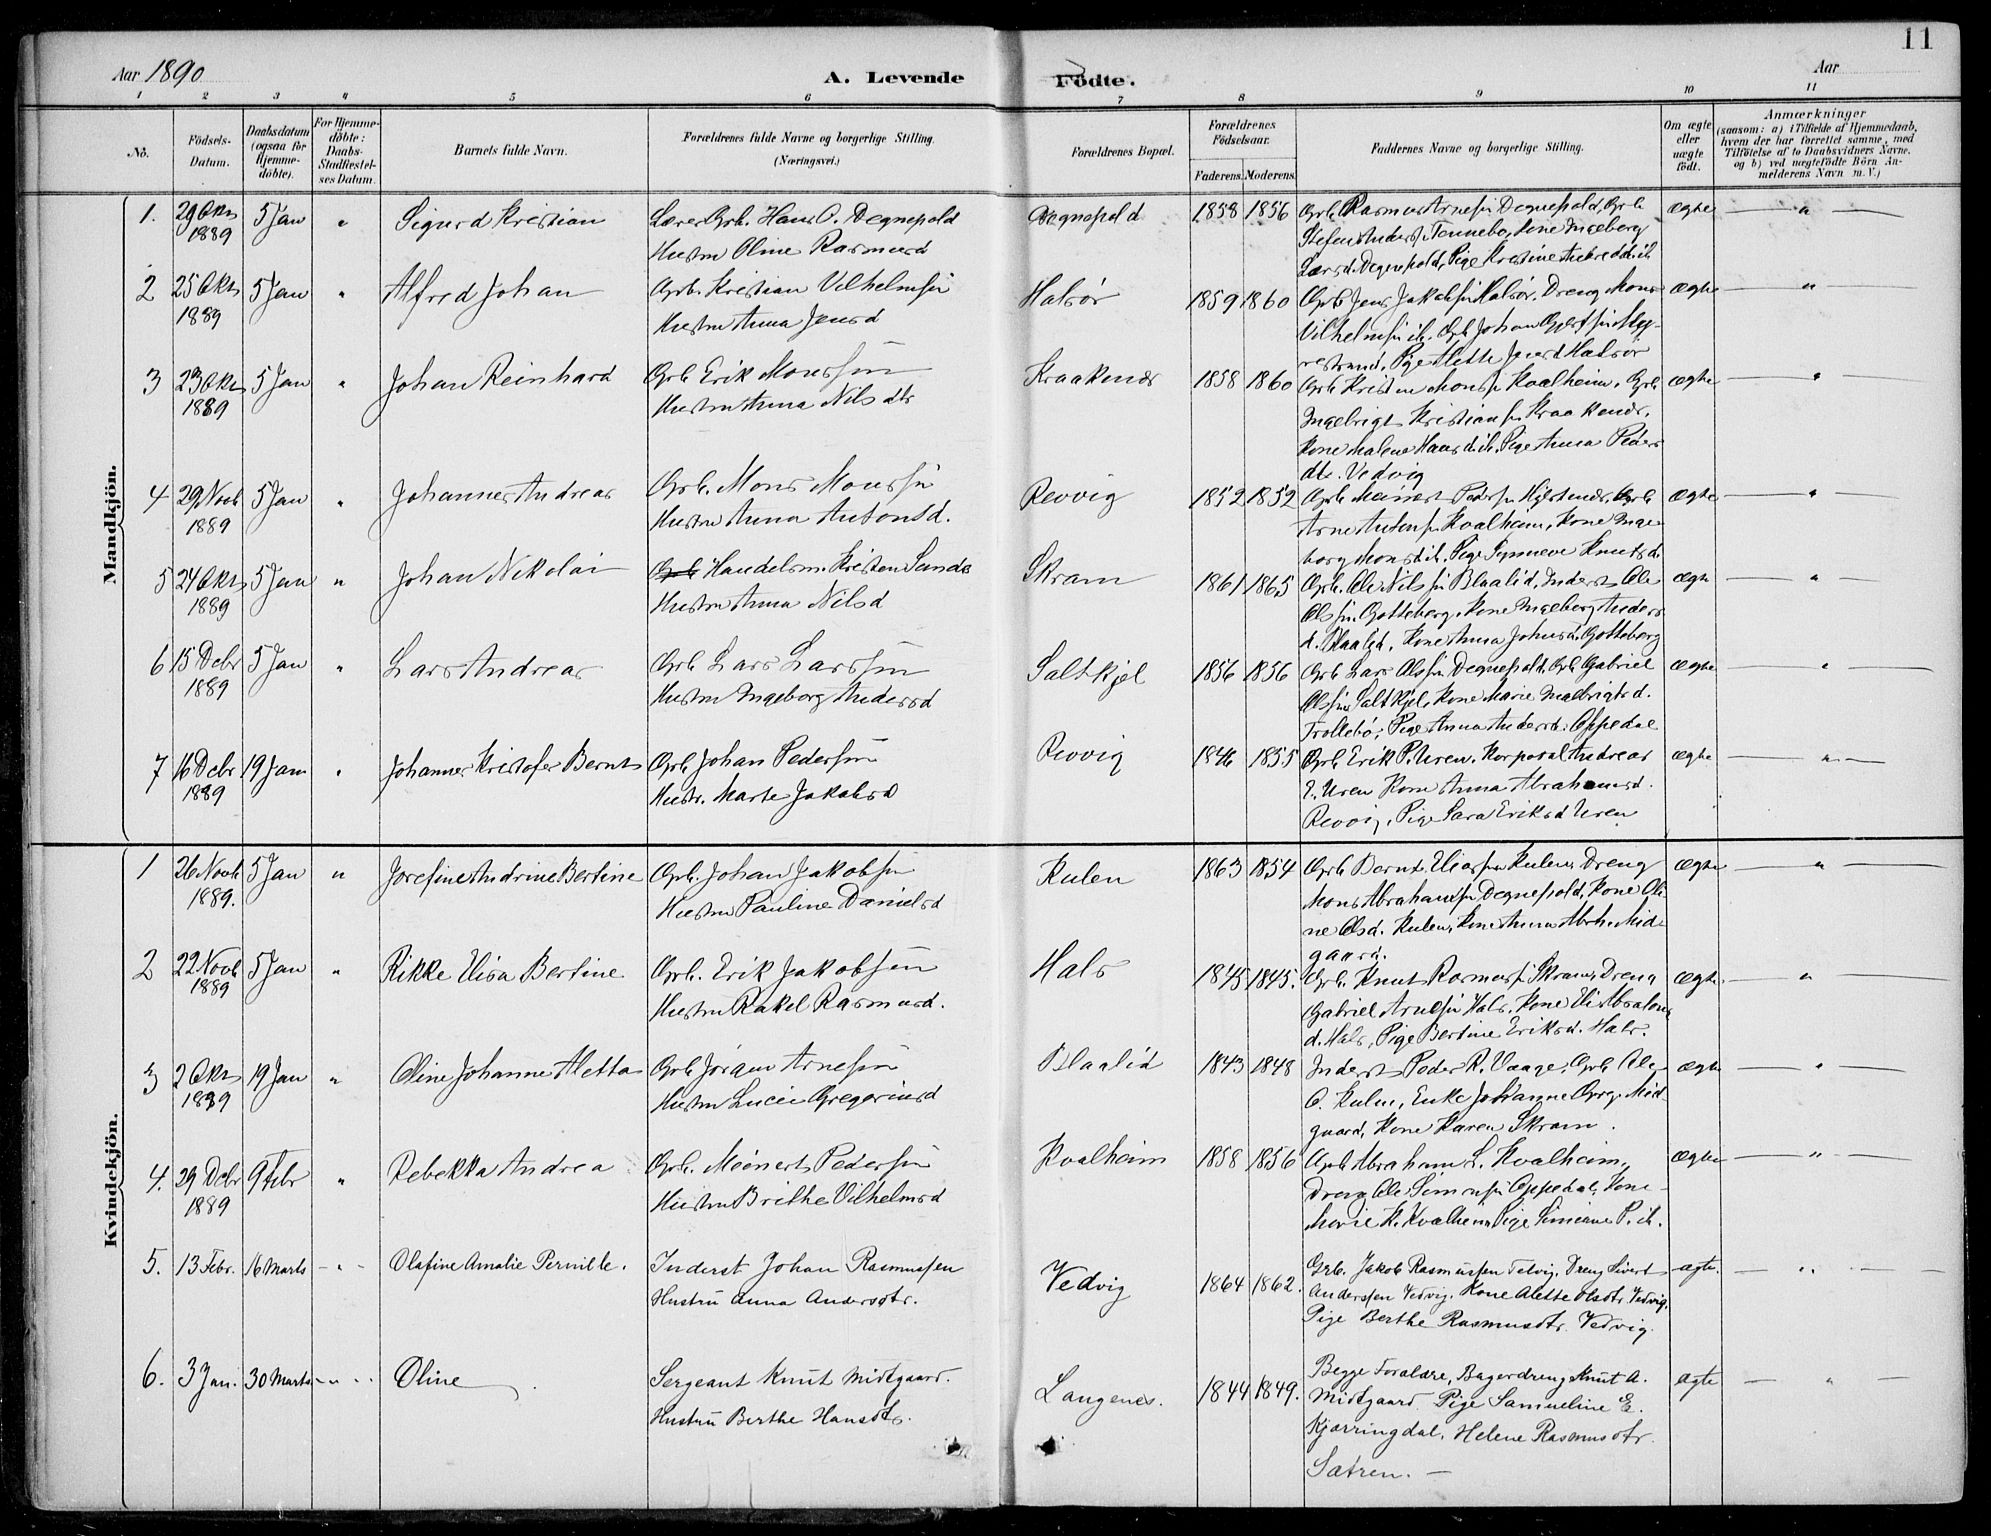 11
Aar 1890
A. Levende
Födte.
Aar
1 2 3 4 5 6 7 8 9 10 11
No.
Födsels-
Datum.
Daabsdatum
(ogsaa for
Hjemme-
döbte).
For Hjemme-
döbte:
Daabs-
Stadfæstel-
ses Datum.
Barnets fulde Navn.
Forældrenes fulde Navne og borgerlige Stilling.
(Næringsvei.)
Forældrenes Bopæl.
Forældrenes
Födselsaar.
Faderens. Moderens.
Faddernes Navne og borgerlige Stilling.
Om ægte
eller
uægte
født.
Anmærkninger
(saasom: a) i Tilfælde af Hjemmedaab,
hvem der har forrettet samme, med
Tilföielse af to Daabsvidners Navne,
og b) ved uægtefödte Börn An-
melderens Navn m. V.)
Mandkjön.
1. 29 Okt 1889 5 Jan " Sigurd Kristian
Lærer Grb. Hans O. Degnepold
Hustru Oline Rasmusd
Degnepold 1858 1856
Grb. Rasmus Arnesøn Degnepold, Grb
Stefen Anders. Tennebø, Kone Ingeborg
Larsd. Degnepold, Pige Kristine Anderdd. ib.
ægte "
2 25 Okt 1889 5 Jan " Alfred Johan
Grb. Kristian Vilhelmsøn
Hustru Anna Jensd
Halsør 1859 1860
Grb Jens Jakobsøn Halsør, Dreng Mons
Vilhelmsøn ib. Grb Johan
Pige Alette Jensd Halsør
ægte "
3 23 Okt 1889 5 Jan " Johan Reinhard
Grb Erik Monssøn
Hustru Anna Nilsdtr
Kraakenes 1858 1860
Grb Kristen Monss. Kvalheim, Grb
Ingebrigt Kristiansøn Kraakenæs,
Kone Malene Hansd. ib. Pige Anna Peders
dtr. Vedvig
ægte "
4 29 Novb 1889 5 Jan " Johannes Andreas
Grb. Mons Monssøn
Hustru Anna Antonsd.
Revvig 1852 1852
Grb Meinert Pedersøn Hjertenæs, Grb
Arne Antonsøn Kvalheim, Kone Inge
borg Monsd. ib. Pige Synneve Knutsd.
ægte "
5 24 Okt 1889 5 Jan " Johan Nikolai
Grb Handelsm. Kristen Sande
Hustru Anna Nilsd
Skram 1861 1865
Grb. Ole Nilssøn Blaalid, Inderst Ole
Olssøn Gotteberg, Kone Ingeborg Anders
d. Blaalid, Kone Anna Johnsd. Gotteberg
ægte "
6 15 Debr 1889 5 Jan " Lars Andreas
Grb Lars Larssøn
Hustru Ingeborg Andersd
Saltkjel 1856 1856
Grb Lars Olssøn Degnepold, Grb Gabriel
Olssøn Saltkjel, Kone Marie Ingebrigtsd.
Trollebø, Pige Anna Andersd. Oppedal
ægte "
7 16 Debr 1889 19 Jan " Johannes Kristofer Bernt
Grb Johan Pedersøn
Hustr. Marte Jakobsd
Revvig 1846 1855
Grb Erik P. Uren, Korporal Andreas
E. Uren Kone Anna Abrahamsd.
Revvig, Pige Sara Eriksd Uren
ægte "
Kvindekjön.
1 26 Novb 1889. 5 Jan " Josefine Andrine Bertine
Grb. Johan Jakobsøn
Hustru Pauline Danielsd
Kulen 1863 1854
Grb Bernt Eliassøn Kulen, Dreng
Mons Abrahamsøn Degnepold, Kone Oli
ne Olsd. Kulen, Kone Anna Abrh. Mid
gaard.
ægte "
2 22 Novb 1889 5 Jan " Rikke Elisa Bertine
Grb. Erik Jakobsøn
Hustru Rakel Rasmusd.
Hals 1845 1845.
Grb. Knut Rasmuss. Skram, Dreng
Gabriel Arnesøn Hals, Kone Eli Absalons
d. Hals, Pige Bertine Eriksd. Hals.
ægte "
3 2 Okt 1889 19 Jan " Oline Johanne Aletta
Grb Jørgen Arnesøn
Hustru Lucie Gregoriusd
Blaalid 1843 1848
Inderst Peder R. Vaage, Grb Ole
O. Kulen, Enke Johanne Grg. Mid
gaard, Kone Karen Skram.
ægte "
4. 29 Debr 1889 9 Febr " Rebekka Andrea
Grb. Meinert Pedersøn
Hustru Brithe Vilhelmsd
Kvalheim 1858 1856
Grb Abraham L. Kvalheim,
Dreng Ole Simonsøn Oppedal, Kone
Marie K. Kvalheim Pige Simione P. ib.
ægte "
5. 13 Febr. 16 Marts " Olafine Amalie Pernille.
Inderst Johan Rasmussen
Hustru Anna Andersdtr.
Vedvig 1864 1862.
Grb. Jakob Rasmussen Tetvig, Dreng Sivert
Anderssen Vedvig. Kone Alette Olsdtr. Vedvig,
Pige Berthe Rasmusdtr. Vedvig.
ægte. "
6. 3 Jan. 30 Marts " Oline
Sergeant Knut Midtgaard.
Hustru Berthe Hansdtr.
Langenes. 1844 1849.
Begge Forældre, Bagerdreng Knut A.
Midtgaard. Pige Samueline E.
Kjørringdal, Helene Rasmusdtr.
Sætren. —
ægte "